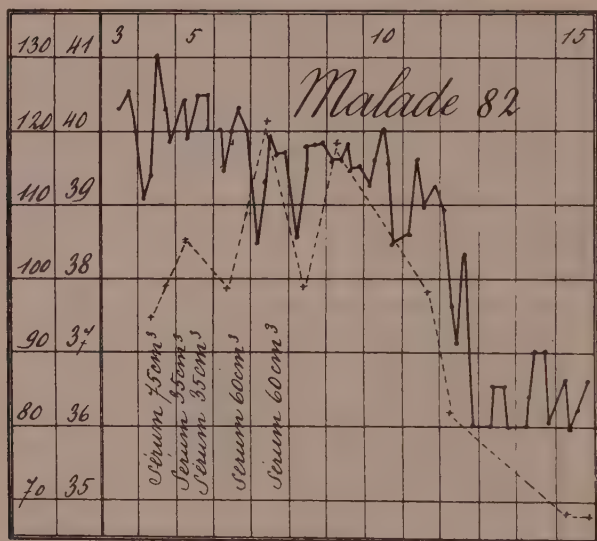 3 5 10 15
130 41
Malade 82
120 40
110 39
100 38
90 37
80 36
70 35
Sérum 75cm³
Serum 35cm³
Sérum 35cm³
Serum 60cm³
Serum 60cm³